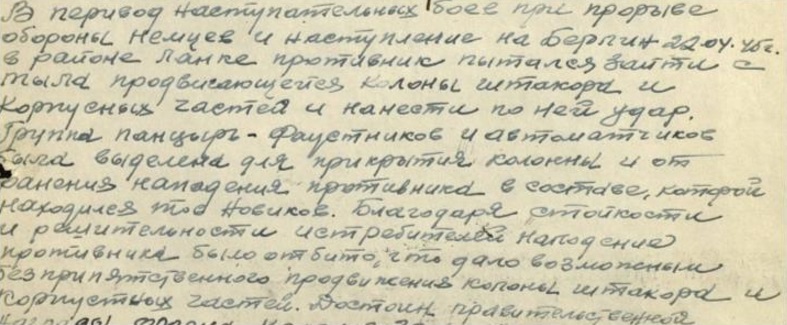 В перивод наступательных боев при прорыве
обороны немцев и наступление на Берлин 22.04.45г.
в районе Ланке противник пытался зайти с
тыла продвигающейся колоны штакора и
корпусных частей и нанести по ней удар.
Группа панцырь-фаустников и автоматчиков
была выделена для прикрытия колонны и от
ранения нападения противника в составе, которой
находился тов Новиков. Благодаря стойкости
и решительности истребителей нападение
противника было отбито, что дало возможным
безприпятственного продвижения колоны штакора и
корпустных частей. Достоин правительственной
награды